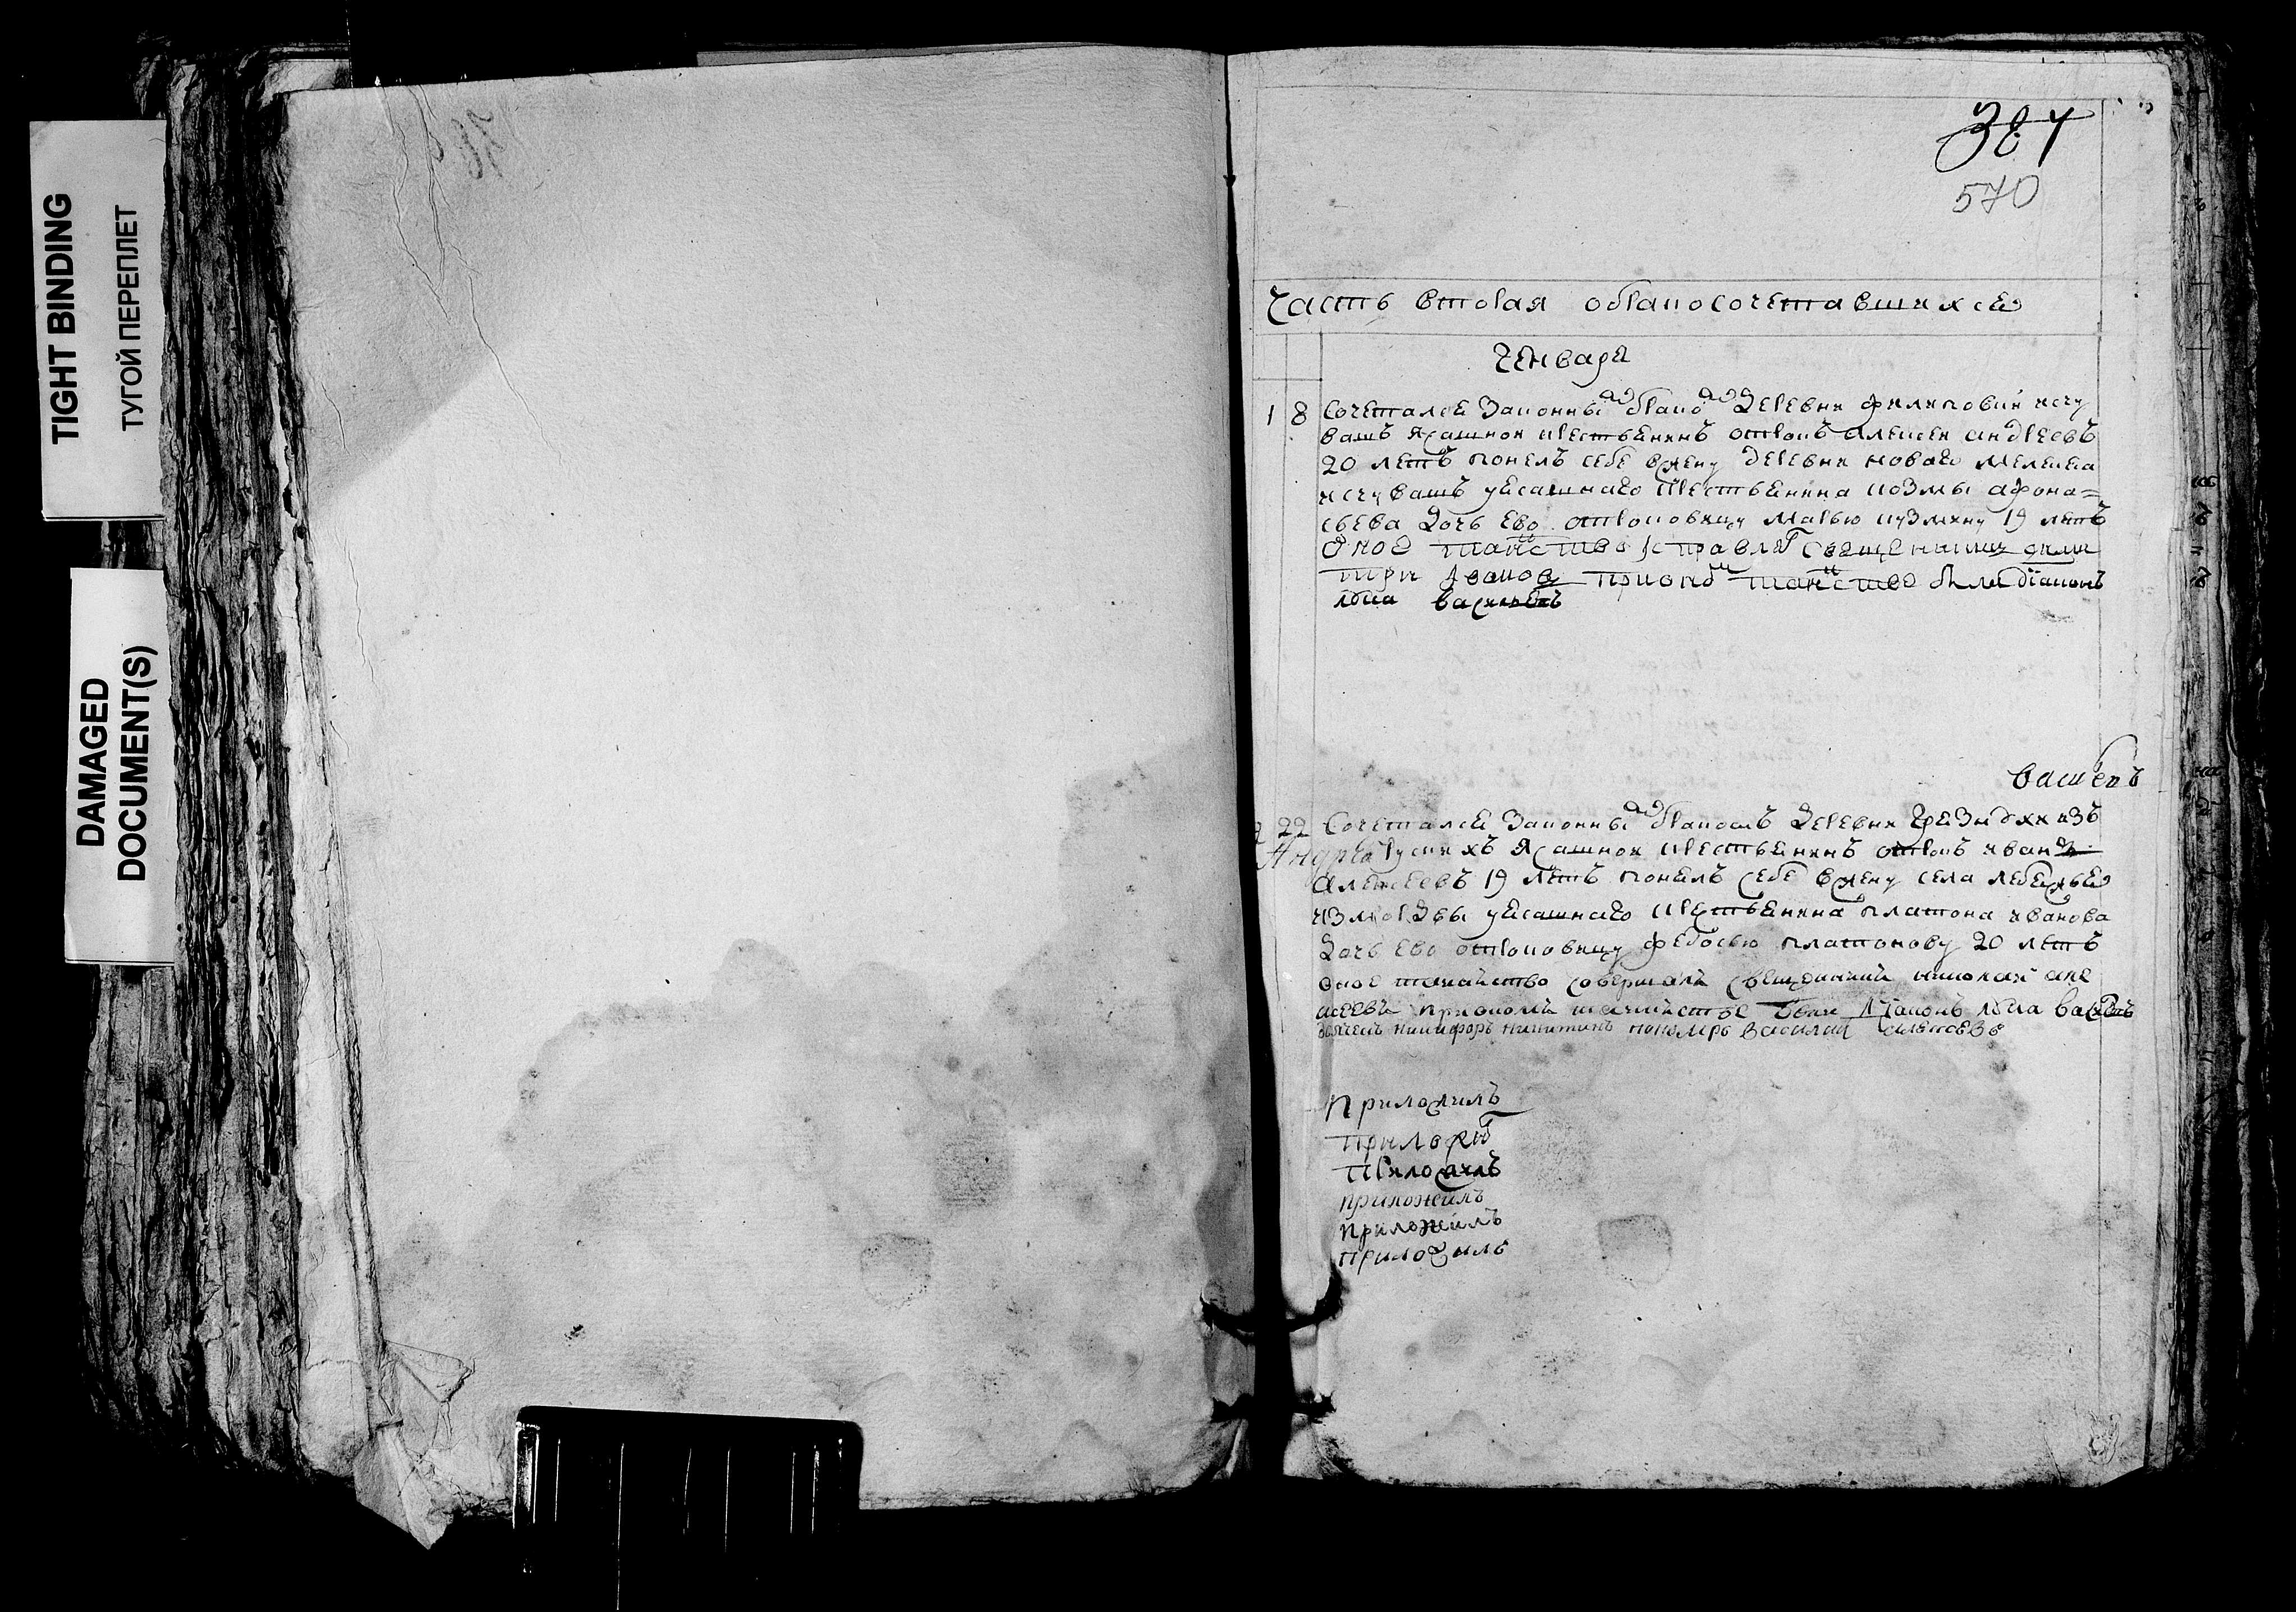 TIGHT BINDING
ТУГОЙ ПЕРЕПЛЕТ
DAMAGED
DOCUMENT(S)
387
570
Часть вторая обракосочетавшихся
Генваря
1 8 Сочетался законным браком деревни филиповки исчу
вашъ ясашной крестьянинъ отрокъ алексеи андреевъ
20 летъ понелъ себе вжену деревни новаго
исчувашъ уясашнаго крестьянина козмы афона=
сьева дочь ево отроковицу марью кузмину 19 летъ
оное таиство исправлял священникъ дими
трии иванов приономъ таинстве были диаконъ
лука васильевъ
вашеръ
2 22 Сочетался законным бракомъ деревни изъ
русскихъ ясашной крестьянинъ отрокъ иванъ
алексеевъ 19 летъ понелъ себе вжену села
измордвы уясашнаго крестьянина платона иванова
дочь ево отроковицу федосью платонову 20 летъ
оное таинство совершалъ священникъ николай але
ксеевъ приономъ таинстве были диаконъ лука
никифоръ никитинъ пономарь василий алексеевъ
приложилъ
приложил
приложилъ
приложилъ
приложилъ
приложилъ